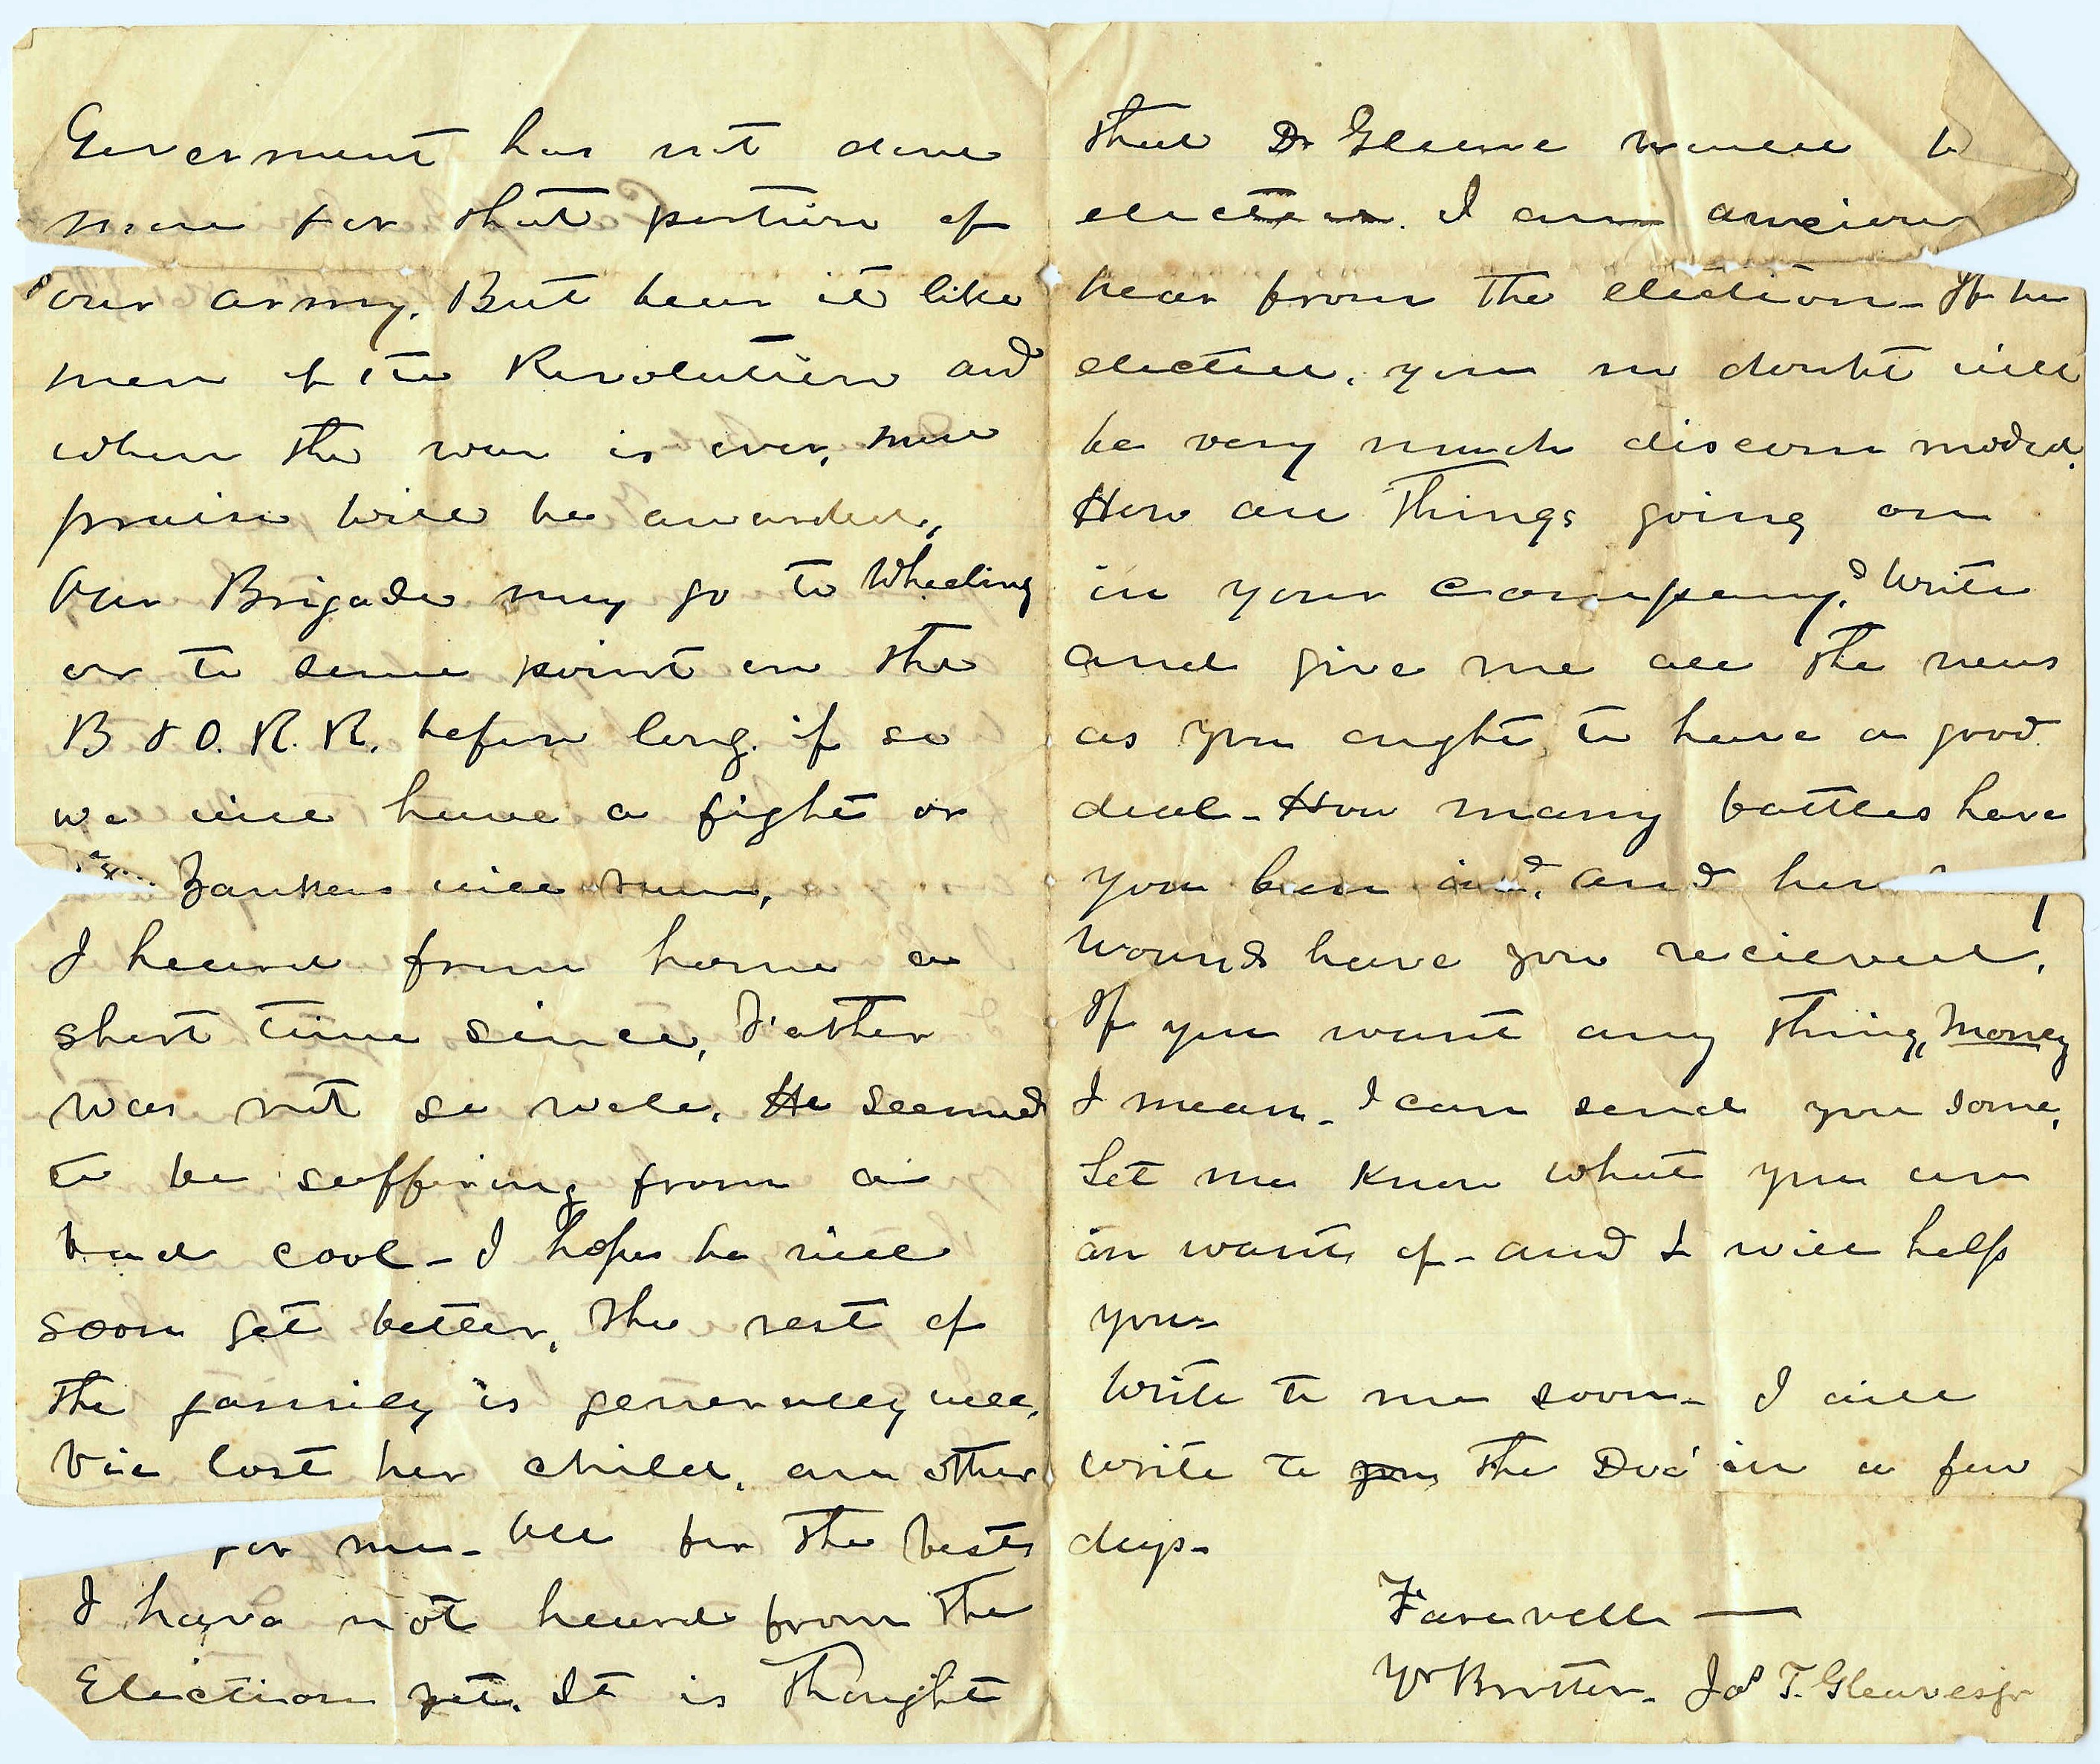 Goverment has not done
more for that portion of
our army. But bear it like
men of the Revolution and
when the war is over, more
praise will be awarded,
Our Brigade may go to Wheeling
or to some point on the
B & O. R. R. before long. if so
we will have a fight or
Yankees will run,
I heard from home a
short time since, Father
was not so well. He seemed
to be suffering from a
bad cool - I hope he will
soon get better, The rest of
the family is generally well,
Vic lost her child, an other
for me - All for the best
I have not heard from the
Election yet. It is thought
that Dr Gleave would be
elected. I am anxious
hear from the election - If he
elected, you no doubt will
be very much discommoded.
How are things going on
in your company? Write
and give me all the news
as you ought to have a good
deal - How many battles have
you been in? and how
wounds have you recieved,
If you want any thing, money
I mean - I can send you some,
Let me know what you are
in want of - and I will help
you -
Write to me soon - I will
write to you the Doc' in a few
days -
Farewell —
Yr Brother - Jas T. Gleaves jr